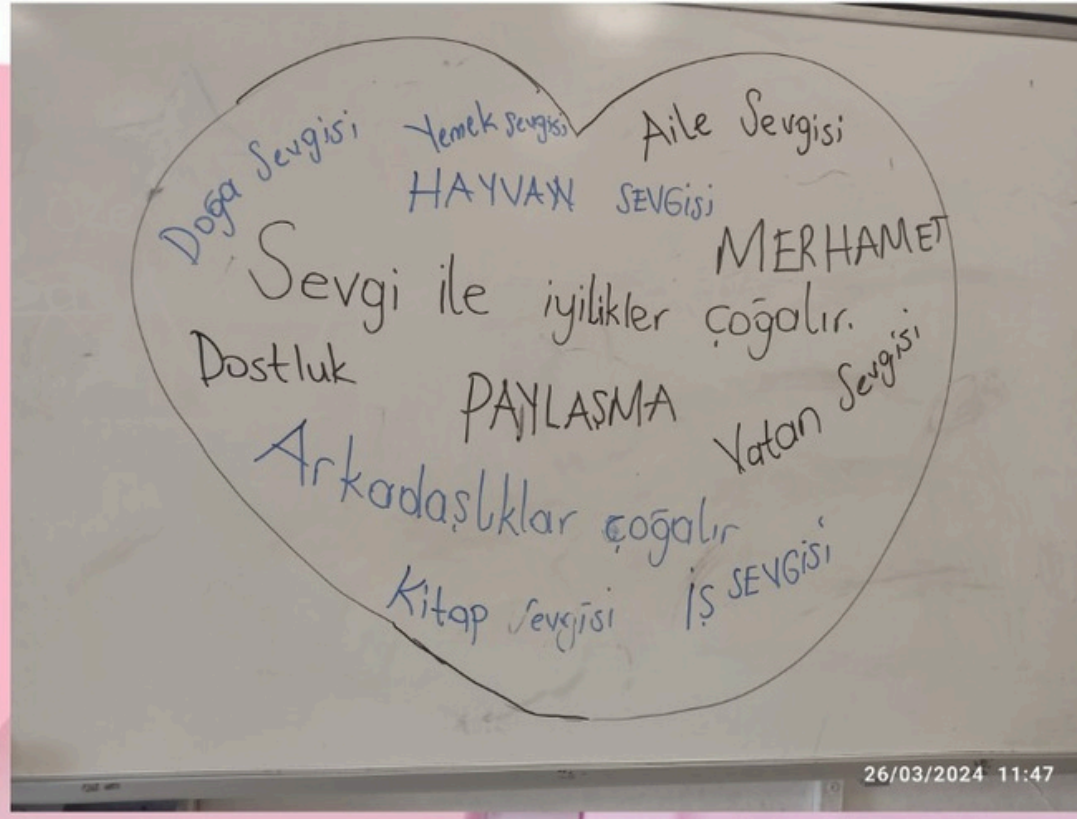 Doğa Sevgisi
Yemek Sevgisi
Aile Sevgisi
HAYVAN SEVGİSİ
MERHAMET
Sevgi ile iyilikler çoğalır.
Dostluk
PAYLAŞMA
Vatan Sevgisi
Arkadaşlıklar çoğalır
Kitap Sevgisi
İŞ SEVGİSİ
26/03/2024 11:47